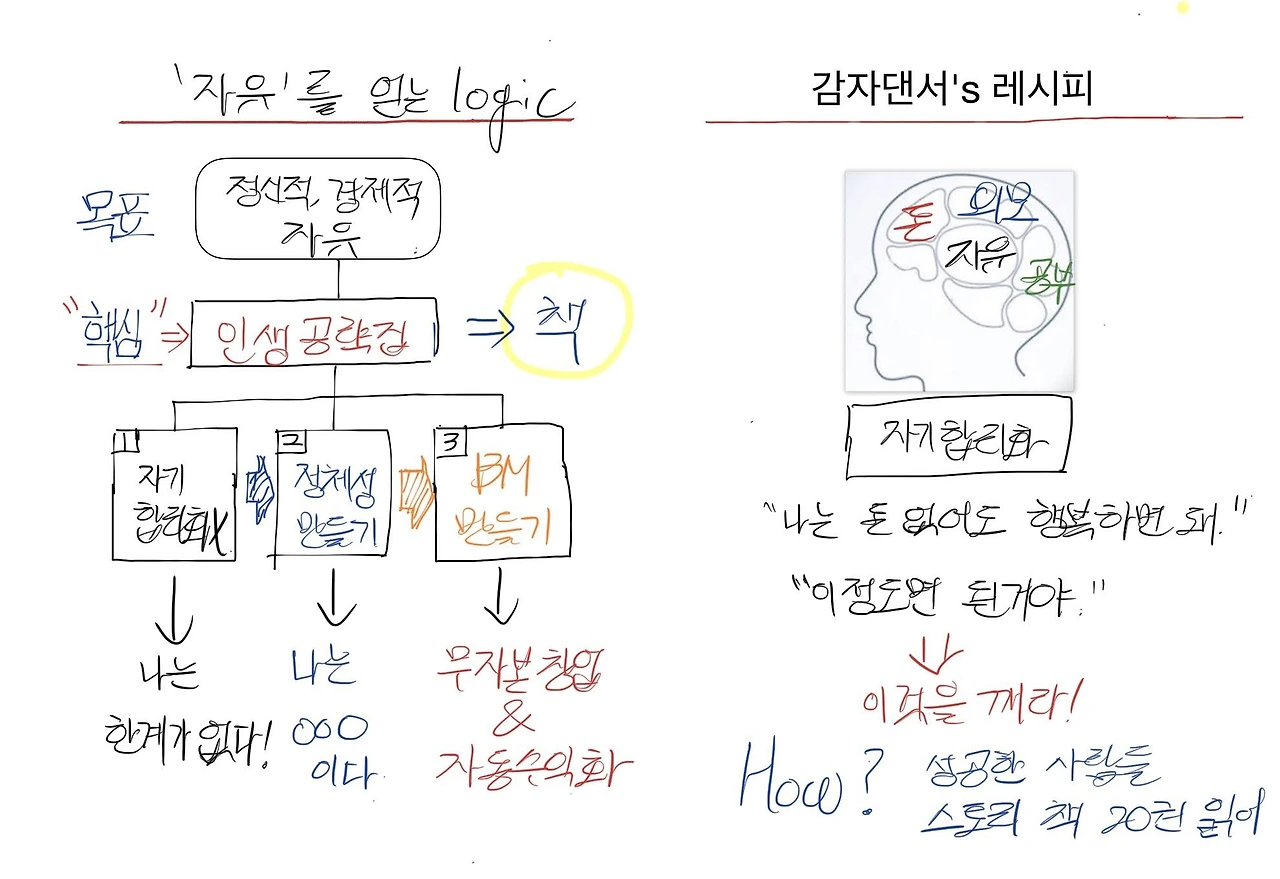 '자유'를 얻는 logic
목표
정신적, 경제적
자유
"핵심" ⇒ 인생공략집 ⇒ 책
1
자기
합리화X
2
정체성
만들기
3
BM
만들기
나는
한계가 없다!
나는
OOO
이다
무자본창업
&
자동수익화
감자댄서's 레시피
돈 외모
자유
공부
자기합리화
"나는 돈 없어도 행복하면 돼."
"이정도면 된거야."
이것을 깨라!
How?
성공한 사람들
스토리 책 20권 읽어